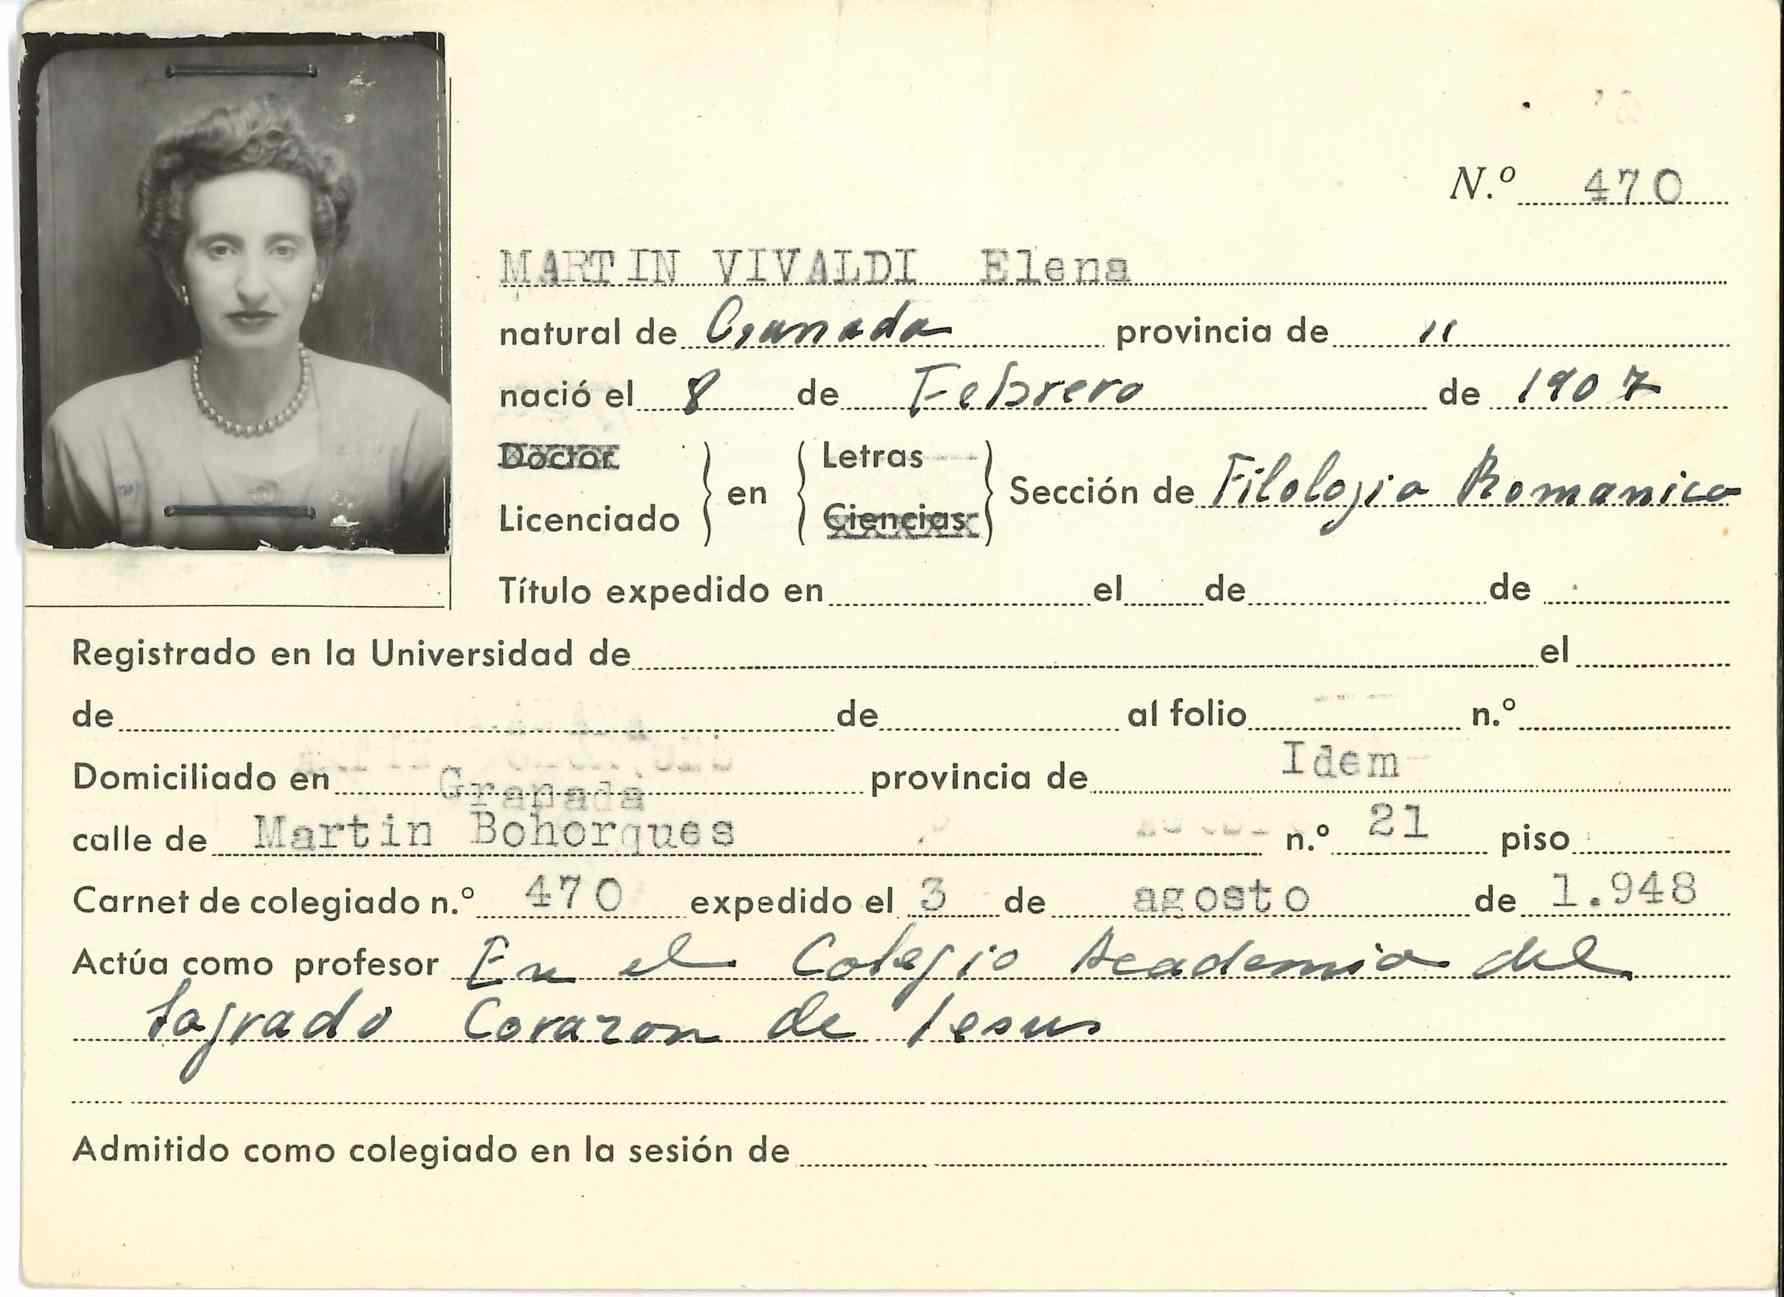 N.º 470
MARTIN VIVALDI Elena
natural de Granada provincia de "
nació el 8 de Febrero de 1907
Doctor Licenciado } en { Letras Ciencias } Sección de Filologia Romanica
Título expedido en el de de
Registrado en la Universidad de el
de de al folio n.º
Domiciliado en Granada provincia de Idem
calle de Martin Bohorques n.º 21 piso
Carnet de colegiado n.º 470 expedido el 3 de agosto de 1.948
Actúa como profesor En el Colegio Academia del
Sagrado Corazon de Jesus
Admitido como colegiado en la sesión de